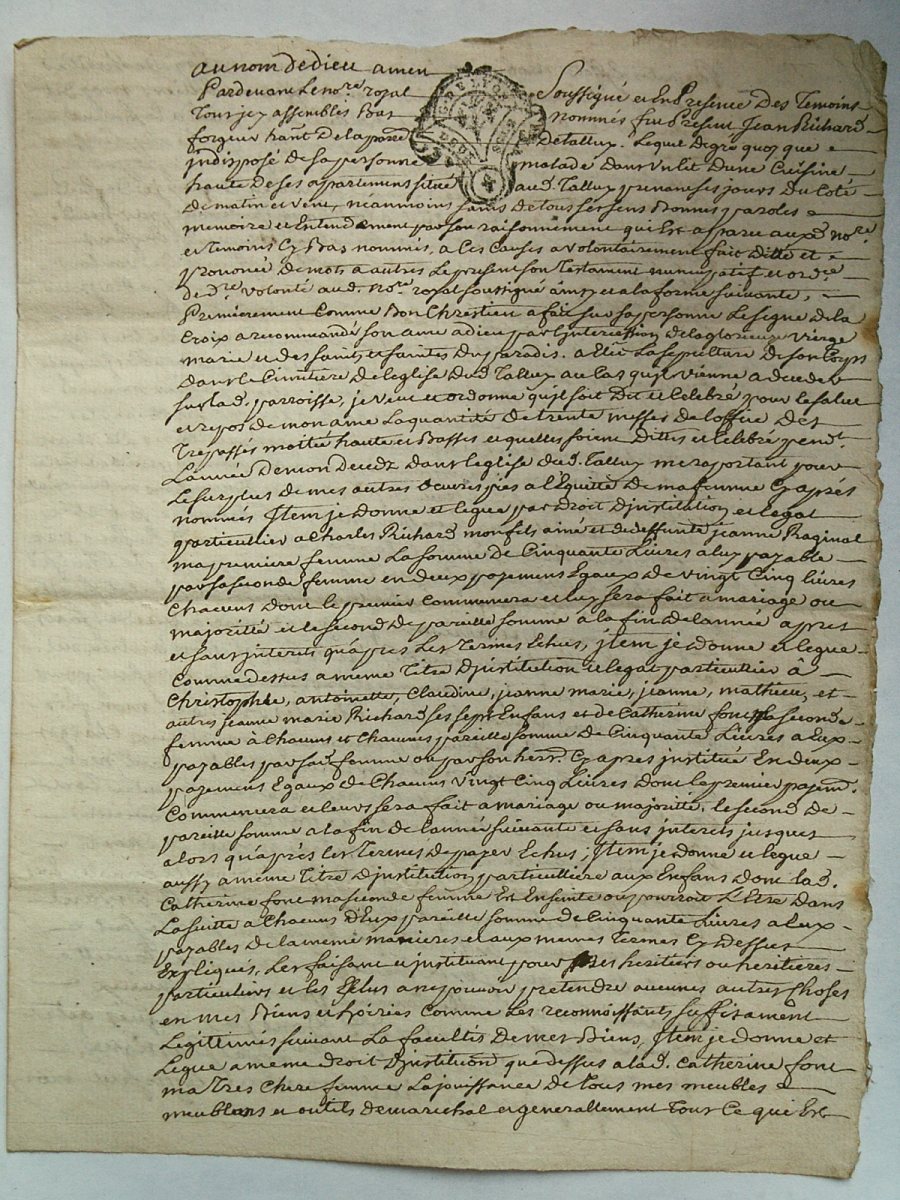 au nom de dieu amen
Pardevant Le no.re royal Soussigné et En Presence Des Temoins
Tous jcy assemblés Bas nommés fut Present Jean Richard
forgeur hant De la parr de Tallux. Lequel de gré quoy que
jndisposé de sa personne malade dans un lit d'une Cuisine
haute de ses appartemens situé aud. Tallux prenant ses jours du Coté
De matin et vent, neanmoins sains de tous ses sens Bonnes paroles
memoire et Entendement par son raisonnement qui Est apparu auxd. no.re
et Temoins Cy Bas nommés, a Ces Causes a volontairement fait ditte et
prononcé De mots a autres Le present son Testament nuncupatif et ord.re
de d.re volonté aud. no.re royal soussigné ainsy et a la forme suivante,
Premierement Comme Bon Chrestien a fait sur sa personne Le signe de la
Croix a recommandé son ame a dieu par l'jntercession de la glorieuse vierge
marie et des saints et saintes du paradis. a Elu La sepulture de son Corps
dans le Cimitiere de l'eglise dud. Tallux au Cas qu'jl vienne a deceder
sur lad. parroisse, je veut et ordonne qu'jl soit Dit et Celebré pour le salut
et repos de mon ame La quantité de trente messes de l'office Des
Trepassés moitié haute et Basses et quelles soient dittes et Celebré pend.t
L'année De mon Decedz Dans l'eglise dud. Tallux me raportant pour
Le surplus de mes autres oeuvres pies a l'Equité De ma femme Cy après
nommés Jtem je donne et legue par Droit D'jnstitution et legat
particullier a Charles Richard mon fils ainé et de deffunte jeanne Raginal
ma premiere femme La somme de Cinquante Livres a luy payable
par sa seconde femme en deux payemens Egaux de vingt Cinq livres
Chacuns dont le premier Commencera et luy sera fait a mariage ou
majorité et le second De pareille somme a la fin de l'année apres
et sans jnterets qu'apres Les Termes Echus, jtem je donne et legue
Comme dessus a meme Titre D'jnstitution et legat particullier à
Christophle, antoinette, Claudine, jeanne marie, jeanne, mathieu, et
autres jeanne marie Richard ses sept Enfans et de Catherine font sa seconde
femme à Chacuns et Chacunes pareille somme de Cinquante Livres a Eux
payables par sad. femme ou par son herr. Cy apres jnstitué En deux
payemens Egaux de Chacuns vingt Cinq Livres Dont le premier payem.t
Commencera et leurs sera fait a mariage ou majorité, le second De
pareille somme a la fin de l'année suivante et sans jnterets jusques
alors qu'après les Termes de payer Echus; Jtem je donne et legue
aussy a meme Titre D'jnstitution particulliere aux Enfans dont lad.
Catherine font ma seconde femme Est Enseinte ou pourroit L'Etre Dans
La suitte a Chacuns d'Eux pareille somme de Cinquante Livres a Eux
payables de la meme manieres et aux memes Termes Cy dessus
Expliqués, Les faisant et jnstituant pour Mes heritiers ou heritieres
particuliers et les Exclus a ne pouvoir pretendre aucunes autres Choses
en mes Biens et hoiries Comme Les reconnoissants suffisament
Legitimés suivant La facultés De mes Biens, Jtem je donne et
Legue a meme droit D'jnstitution que dessus a lad. Catherine font
ma Tres Chere femme La jouissance de tous mes meubles
meublans et outils de marechal et generallement Tout Ce qui Est